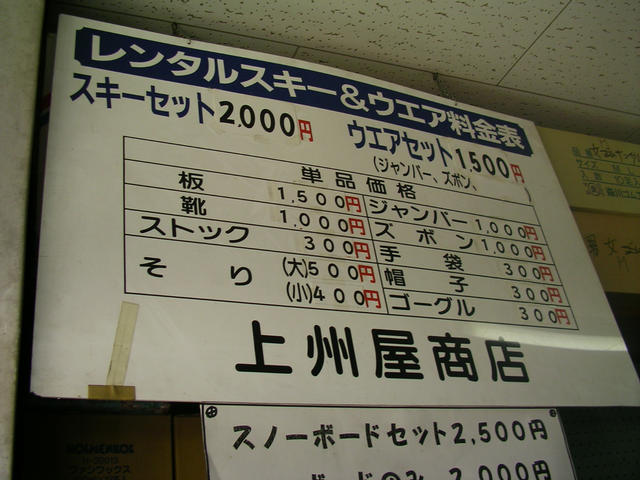 レンタルスキー&ウエア料金表
スキーセット2,000円
ウエアセット1,500円
(ジャンパー、ズボン、 )
単品価格
板 1,500円
靴 1,000円
ストック 300円
そり (大)500円
(小)400円
ジャンパー 1,000円
ズボン 1,000円
手袋 300円
帽子 300円
ゴーグル 300円
上州屋商店
スノーボードセット2,500円
ボードのみ 2,000円